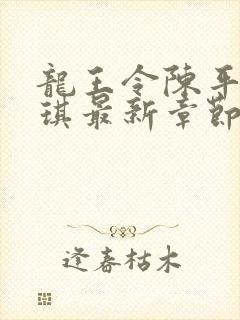 龍王令陳平
琪最新章節
逢春枯木